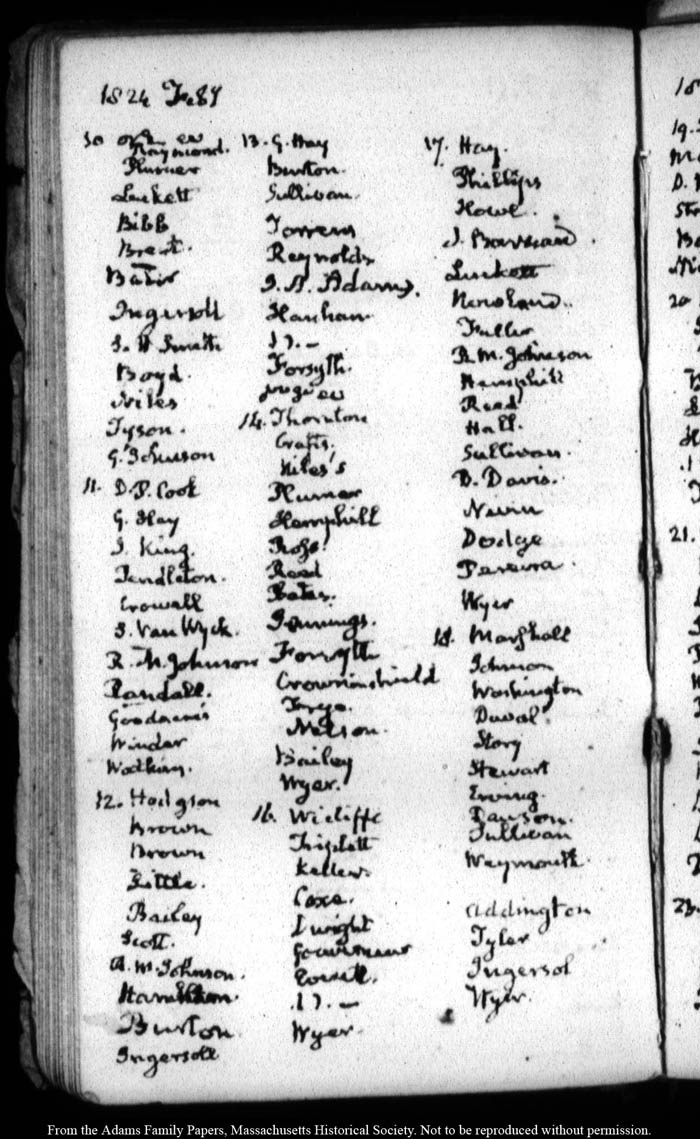 1824 Feby
10
Raymond.
Plumer
Luckett
Bibb
Brent.
Ingersoll
S. H Smith
Boyd.
Niles
Tyson.
G. Johnson
11. D. P. Cook
G. Hay
J. King.
Pendleton.
Crowell
S. Van Wyck.
R. M. Johnson
Randall.
Winder
Watkins.
12. Hodgson
Brown
Brown
Little.
Bailey
Scott.
R. M. Johnson.
Burton
Ingersoll
13. G. Hay
Burton.
Sullivan.
Torrens
Reynolds
Hanham
Forsyth.
14. Thornton
Crafts.
Niles's
Plumer
Hemphill
Ross.
Reed
Bates.
Jennings.
Forsyth
Crowninshield
Frye.
Nelson.
Bailey
Wyer.
16. Wicliffe
Triplett
Keller.
Coxe.
Dwight
Gouverneur
Wyer
17. Hay.
Phillips
Howe.
Luckett
Fuller
R. M. Johnson
Hemphill
Reed
Hall.
Sullivan.
D. Davis.
Dodge
Pereira.
Wyer
18. Marshall
Johnson
Washington
Duval.
Story
Stewart
Dawson.
Sullivan
Weymouth.
Addington
Tyler
Ingersol
Wyer.
19.
20
21.
23.
From the Adams Family Papers, Massachusetts Historical Society. Not to be reproduced without permission.